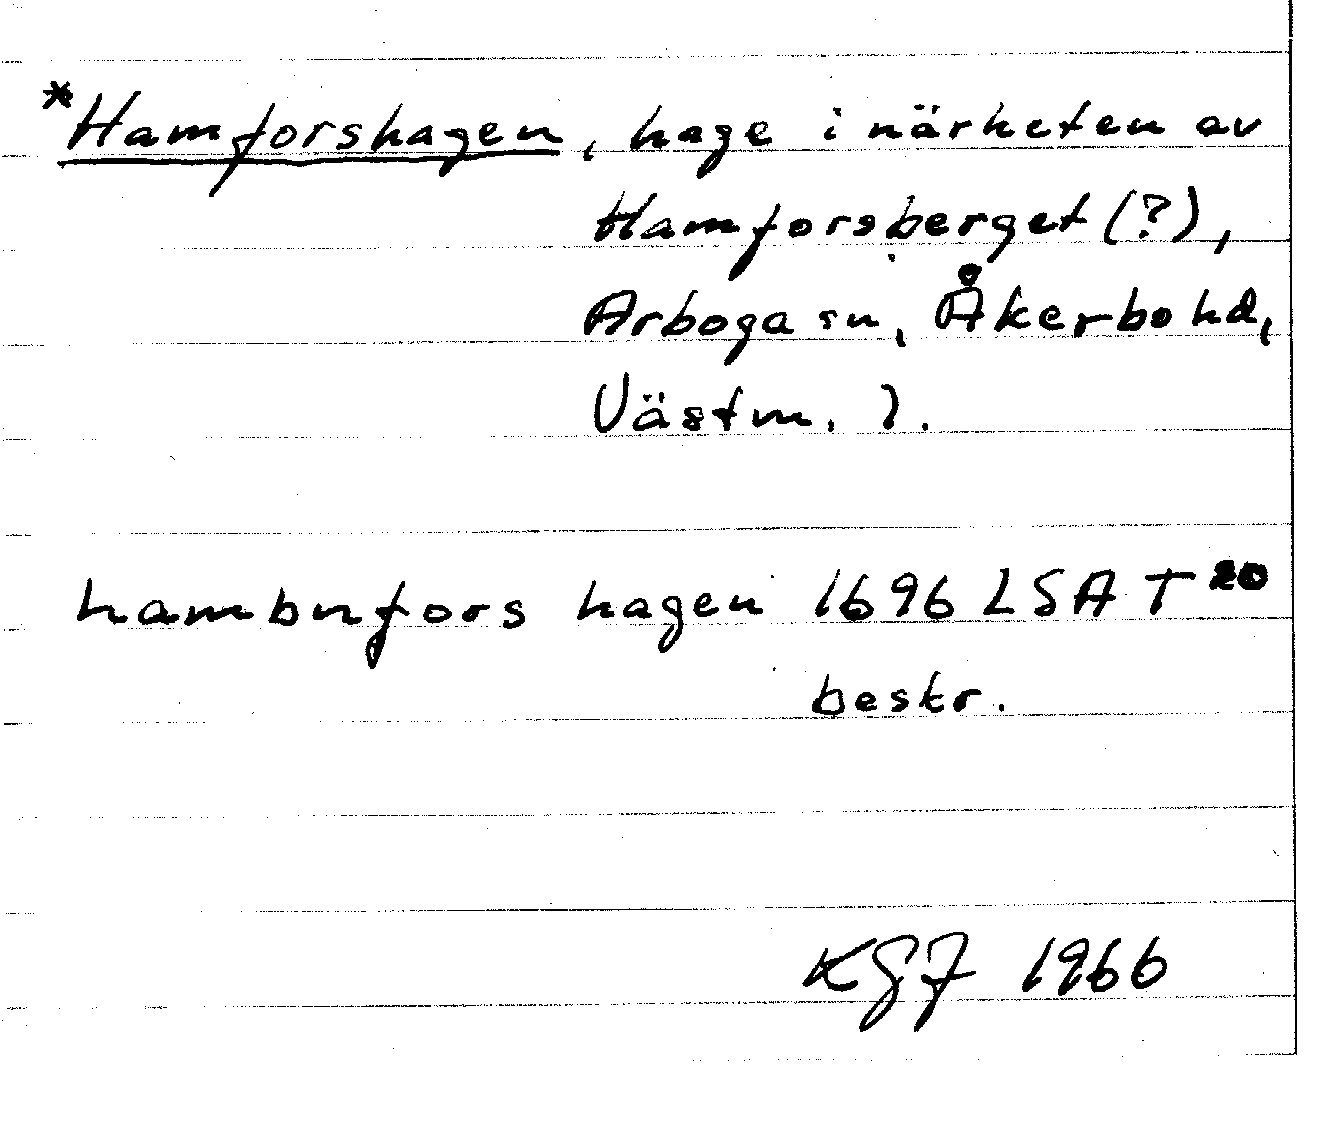 *Hamforshagen, hage i närheten av
Hamforsberget (?),
Arboga sn, Åkerbo hd,
Västm. l.
hambnfors hagen 1696 LSA T 20
beskr.
KGF 1966